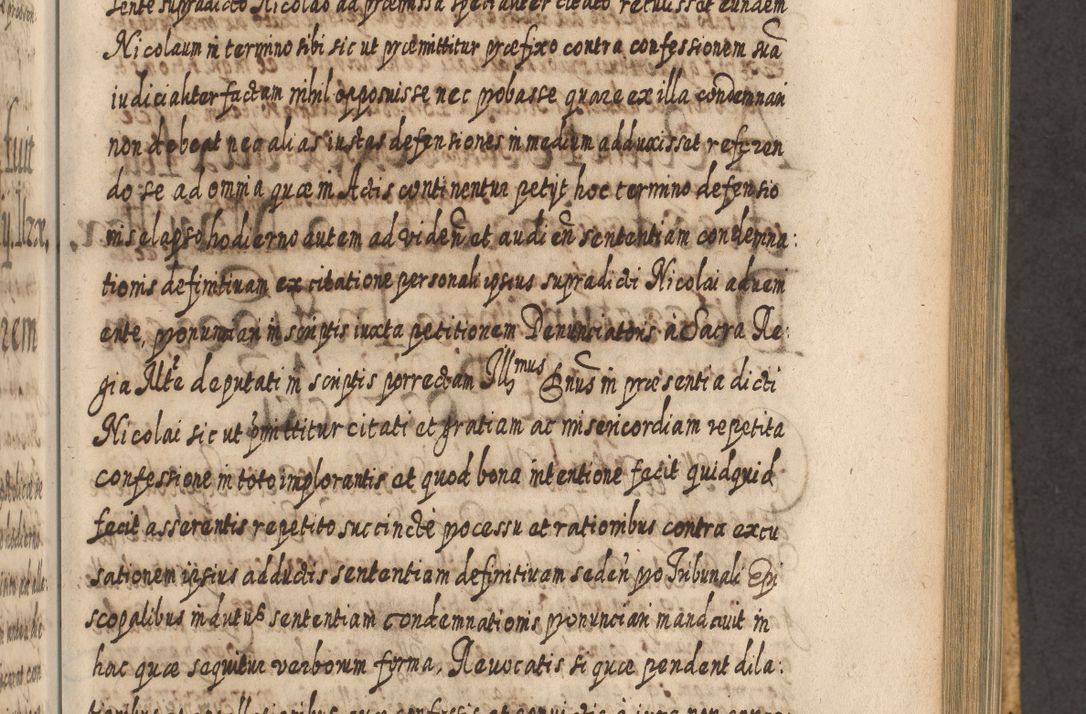 sente supradicto Nicolao ad præmissa specialiter citato retulisset eundem
Nicolaum in termino sibi sic ut præmittitur præfixo contra confessionem suã
iudicialiter factam nihil opposuisse nec probasse quare ex illa condemnari
non debeat nec alias iustas defensiones in medium adduxisset referen
do se ad omnia quæ in Actis continentur petijt hoc termino defensio
nis elapso hodierno autem ad viden̄ et audien̄ sententiam condemna:
tionis definitiuam ex citatione personali ipsius supradicti Nicolai adueni
ente, pronunciari in scriptis iuxta petitionem Denunciatoris à Sacra Re:
gia Mtte deputati in scriptis porrectam Illmus Dnus in præsentia dicti
Nicolai sic ut pmittitur citati et gratiam ac misericordiam repetita
confessione in toto implorantis et quod bona intentione facit quidquid
fecit asserentis repetito succinctè processu et rationibus contra excu
sationem ipsius adductis sententiam definitiuam seden̄ pro Tribunali Epi
scopalibus indutus sententiam condemnationis pronunciari mandauit in
hac quæ sequitur verborum forma. Reuocatis si quæ pendent dila: